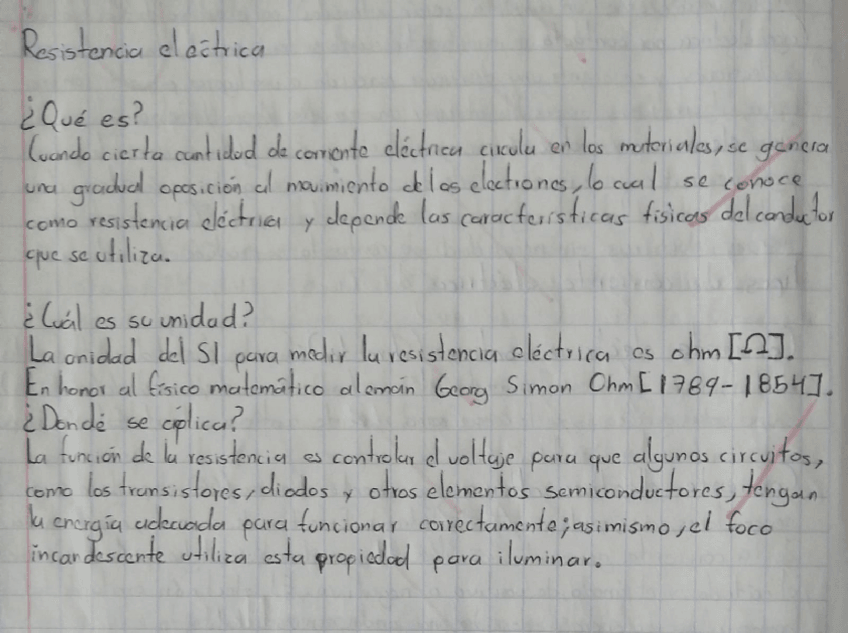 Resistencia eléctrica
¿Qué es?
Cuando cierta cantidad de corriente eléctrica circula en los materiales, se genera
una gradual oposición al movimiento de los electrones, lo cual se conoce
como resistencia eléctrica y depende las características físicas del conductor
que se utiliza.
¿Cuál es su unidad?
La unidad del SI para medir la resistencia eléctrica es ohm [Ω].
En honor al físico matemático alemán Georg Simon Ohm [1789-1854].
¿Dondé se aplica?
La función de la resistencia es controlar el voltaje para que algunos circuitos,
como los transistores, diodos y otros elementos semiconductores, tengan
la energía adecuada para funcionar correctamente; asimismo, el foco
incandescente utiliza esta propiedad para iluminar.